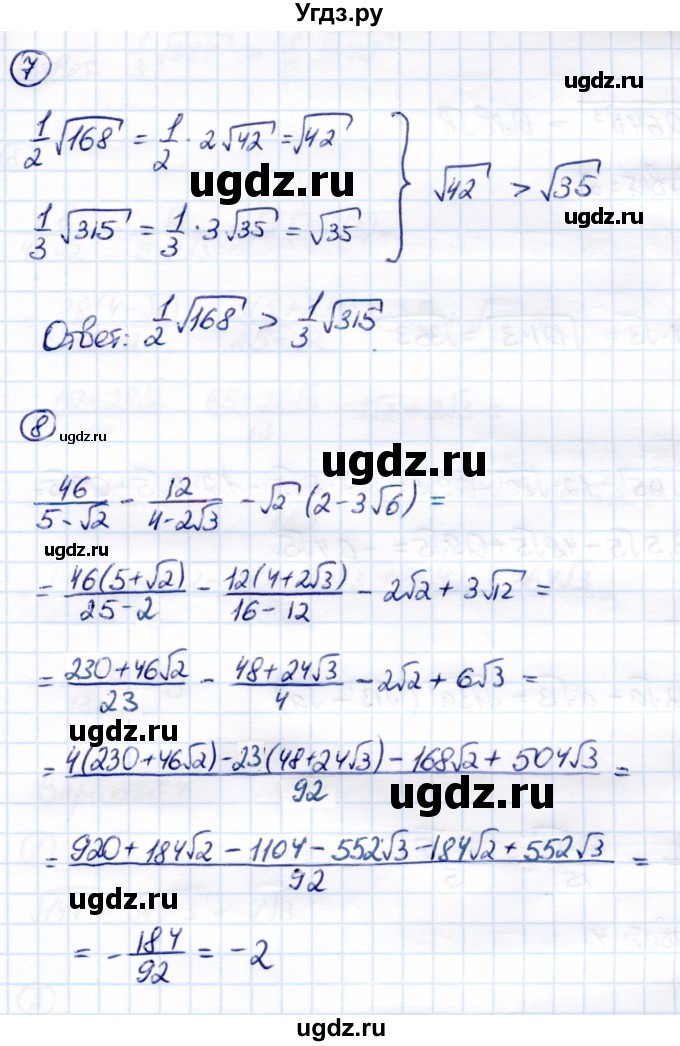 Угдз.ру
7
ugdz.ru
1/2 √168 = 1/2 · 2√42 = √42
ugdz.ru
1/3 √315 = 1/3 · 3√35 = √35
√42 > √35
ugdz.ru
Ответ: 1/2 √168 > 1/3 √315
8
ugdz.ru
ugdz.ru
46/(5-√2) - 12/(4-2√3) - √2 (2-3√6) =
ugdz.ru
= 46(5+√2)/(25-2) - 12(4+2√3)/(16-12) - 2√2 + 3√12 =
= (230+46√2)/23 - (48+24√3)/4 - 2√2 + 6√3 =
ugdz.ru
= (4(230+46√2) - 23(48+24√3) - 168√2 + 504√3)/92 =
ugdz.ru
= (920 + 184√2 - 1104 - 552√3 - 184√2 + 552√3)/92 =
ugdz.ru
= - 184/92 = -2
ugdz.ru